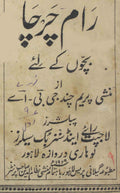 رام چرچا
بچوں کے لئے
از
منشی پریم چند جی بی۔اے
پبلشرز
لاجپت رائے اینڈ سنز بک سیلرز
لوہاری دروازہ لاہور